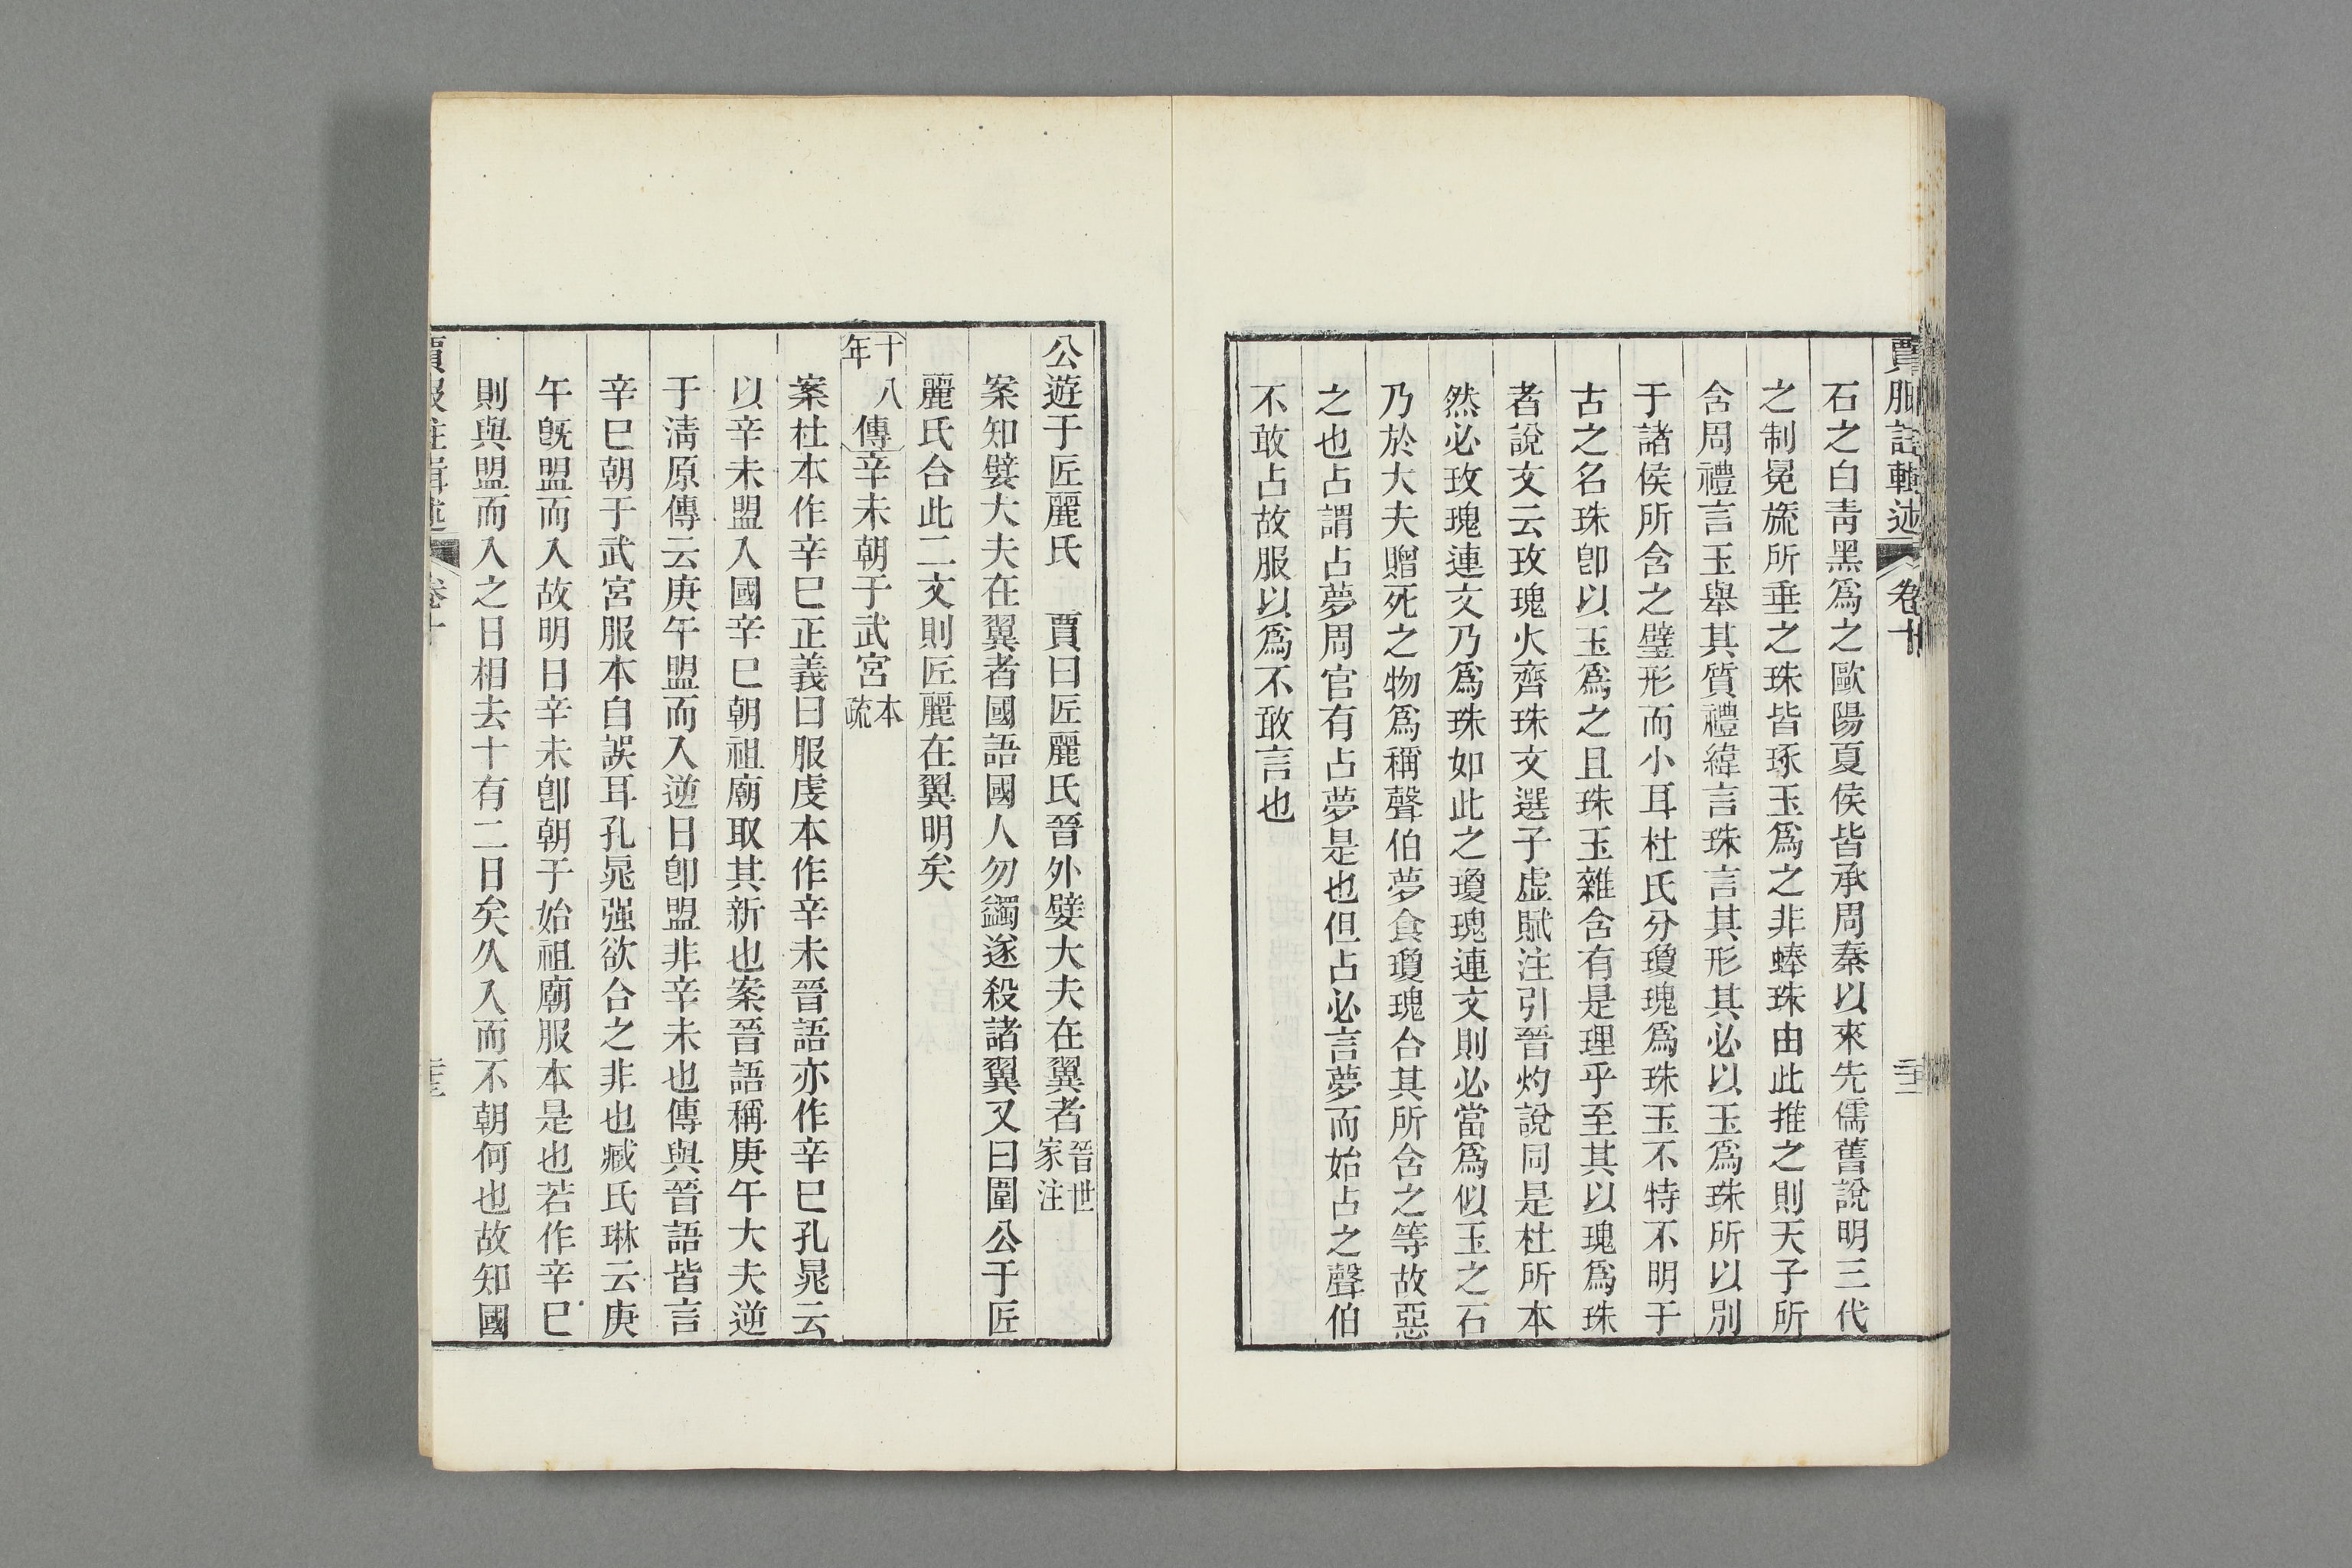 賈服註輯述 卷十
石之白青黑爲之歐陽夏侯皆承周秦以來先儒舊說明三代
之制冕旒所垂之珠皆琢玉爲之非蜯珠由此推之則天子所
含周禮言玉舉其質禮緯言珠言其形其必以玉爲珠所以別
于諸侯所含之璧形而小耳杜氏分瓊瑰爲珠玉不特不明于
古之名珠卽以玉爲之且珠玉雜含有是理乎至其以瑰爲珠
者說文云玫瑰火齊珠文選子虛賦注引晉灼說同是杜所本
然必玫瑰連文乃爲珠如此之瓊瑰連文則必當爲似玉之石
乃於大夫贈死之物爲稱聲伯夢食瓊瑰合其所含之等故惡
之也占謂占夢周官有占夢是也但占必言夢而始占之聲伯
不敢占故服以爲不敢言也
公遊于匠麗氏 賈曰匠麗氏晉外嬖大夫在翼者晉世家注
案知嬖大夫在翼者國語國人勿蠲遂殺諸翼又曰圍公于匠
麗氏合此二文則匠麗在翼明矣
十八年傳辛未朝于武宮本疏
案杜本作辛巳正義曰服虔本作辛未晉語亦作辛巳孔晁云
以辛未盟入國辛巳朝祖廟取其新也案晉語稱庚午大夫逆
于淸原傳云庚午盟而入逆日卽盟非辛未也傳與晉語皆言
辛巳朝于武宮服本自誤耳孔晁强欲合之非也臧氏琳云庚
午旣盟而入故明日辛未卽朝于始祖廟服本是也若作辛巳
則與盟而入之日相去十有二日矣久入而不朝何也故知國